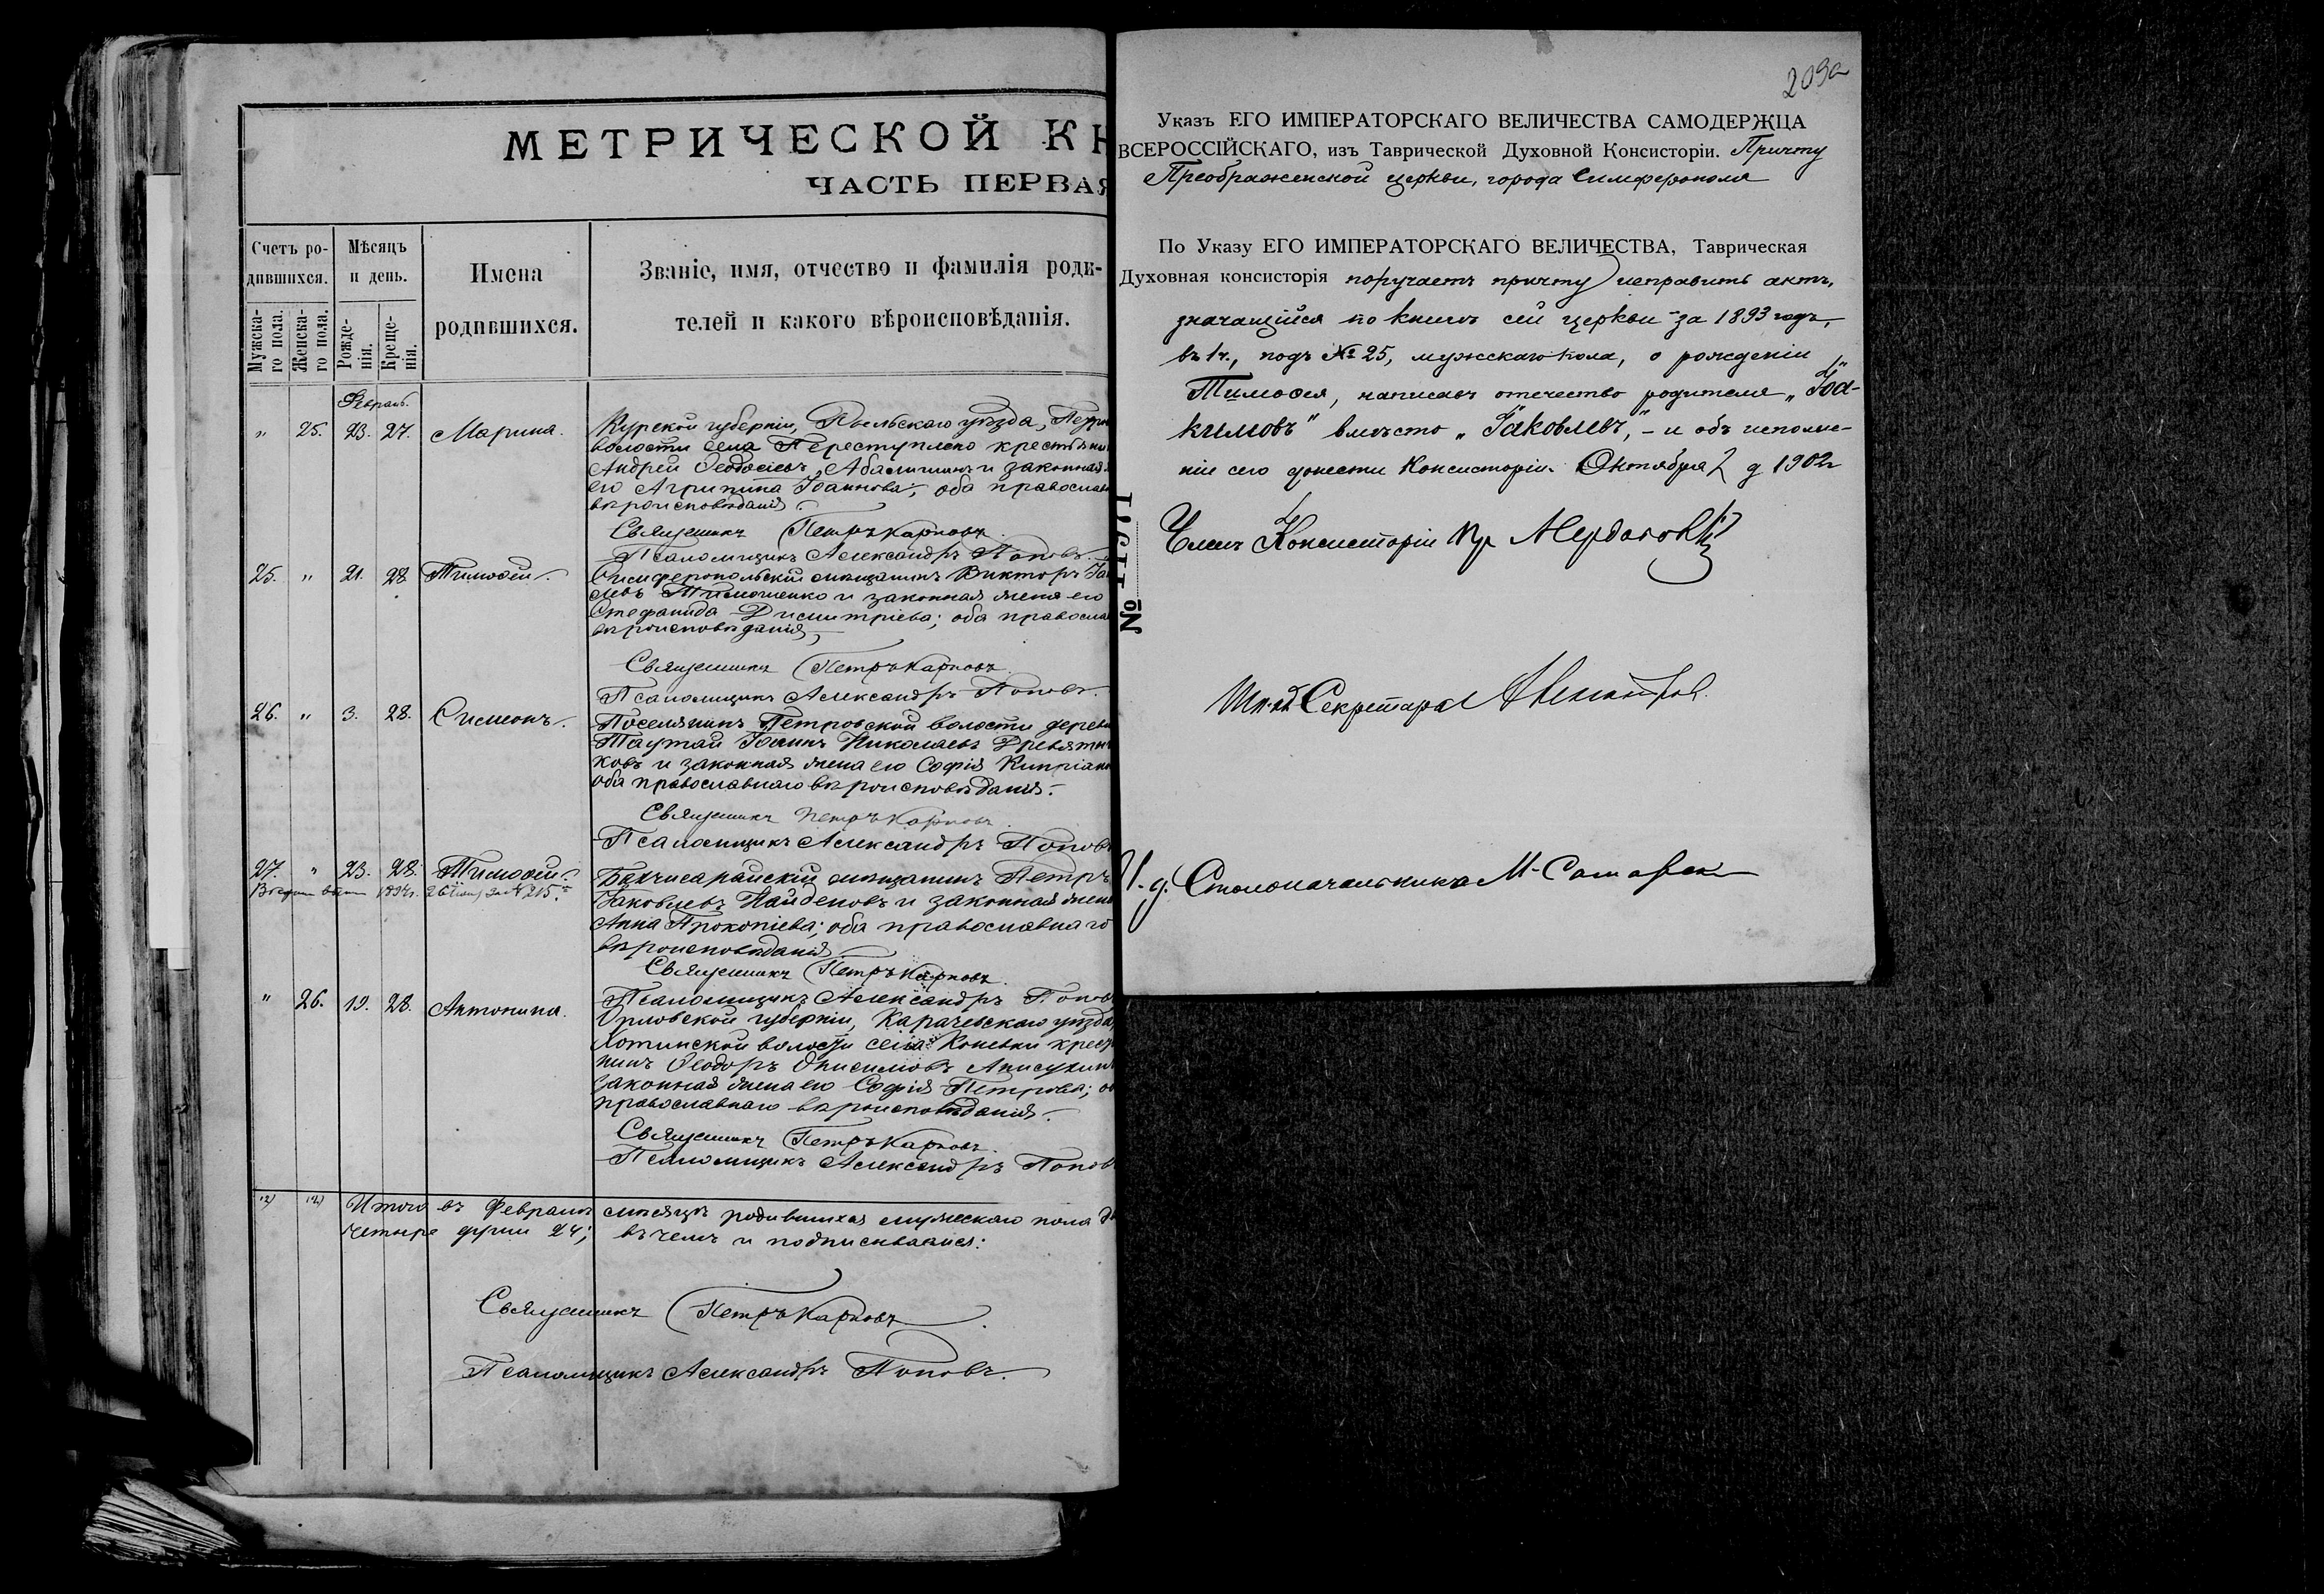 МЕТРИЧЕСКОЙ КН
ЧАСТЬ ПЕРВАЯ
Счетъ ро-
дившихся.
Мужска-
го пола.
Женска-
го пола.
Мѣсяцъ
и день.
Рожде-
нія.
Креще-
нія.
Имена
родившихся.
Званіе, имя, отчество и фамилія роди-
телей и какого вѣроисповѣданія.
Февраль.
" 25. 23. 27. Марина.
Курской губерніи, Рыльскаго уѣзда,
волости села Переступлено крестьянин
Андрей Ѳеодосіевъ и законная
его Агрипина Іоаннова; оба православ
вѣроисповѣданія.
Священникъ Петръ Карповъ
Псаломщикъ Александръ Поповъ.
25. " 21. 28 Тимоѳей.
Симферопольскій мѣщанинъ Викторъ Іак
левъ Тимошенко и законная жена его
Стефанида Димитріева; оба правосла
вѣроисповѣданія.
Священникъ Петръ Карповъ
Псаломщикъ Александръ Поповъ.
26. " 3. 28. Симеонъ.
Поселянинъ Петровской волости дерев
Таутай Іоаннъ Николаевъ
ковъ и законная жена его Софія Кипріан
оба православнаго вѣроисповѣданія.
Священникъ Петръ Карповъ
Псаломщикъ Александръ Попов
27. " 23. 28. Тимоѳей.
Бахчисарайскій мѣщанинъ Петръ
Іаковлевъ Найденовъ и законная жена
Анна Прокопіева; оба православнаго
вѣроисповѣданія
Священникъ Петръ Карповъ
Псаломщикъ Александръ Попов
" 26. 19. 28. Антонина.
Орловской губерніи, Карачевскаго уѣзда,
Хотинской волости села Коневки крест
нинъ Ѳеодоръ Онисимовъ
законная жена его Софія Петрова; об
православнаго вѣроисповѣданія.
Священникъ Петръ Карповъ.
Псаломщикъ Александръ Попов
Итого въ Февралѣ мѣсяцѣ родившихся мужескаго пола
четыре души 24; въ чемъ и подписываемся:
Священникъ Петръ Карповъ
Псаломщикъ Александръ Поповъ.
209а
Указъ ЕГО ИМПЕРАТОРСКАГО ВЕЛИЧЕСТВА САМОДЕРЖЦА
ВСЕРОССІЙСКАГО, изъ Таврической Духовной Консисторіи. Причту
Преображенской церкви, города Симферополя
По Указу ЕГО ИМПЕРАТОРСКАГО ВЕЛИЧЕСТВА, Таврическая
Духовная консисторія поручаетъ причту исправить актъ,
значащійся по книгѣ сей церкви за 1893 годъ,
въ 1 ч., подъ № 25, мужскаго пола, о рожденіи
Тимоѳея, написавъ отчество родителя „Іоа-
кимовъ" вмѣсто „Іаковлевъ", - и объ исполне-
ніи сего донести Консисторіи. Октября 2 д 1902 г
№
Членъ Консисторіи
Секретаря
И. д. Столоначальника М.